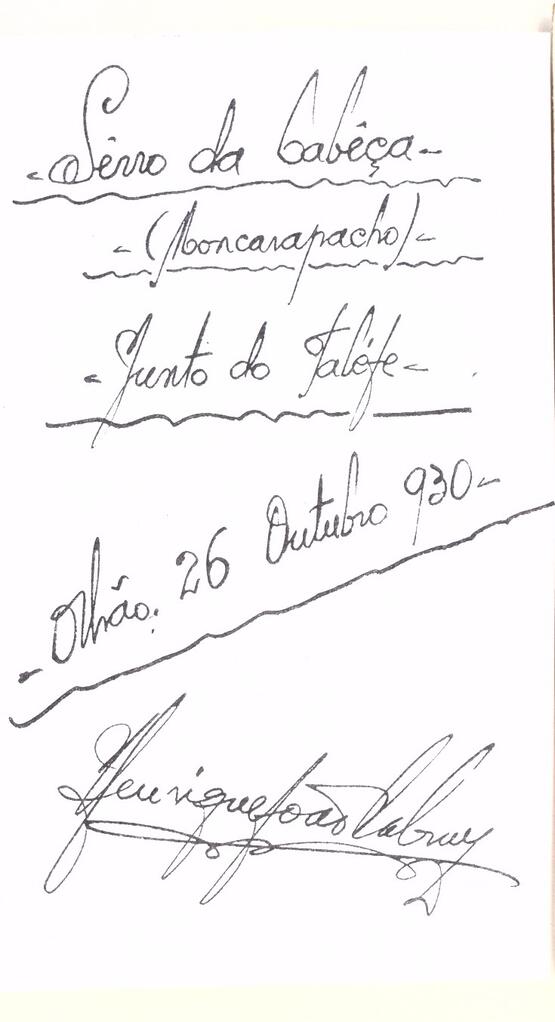 - Sêrro da Cabêça -
- (Moncarapacho) -
- Junto do Taléfe -
- Olhão. 26 Outubro 930 -
Henrique João